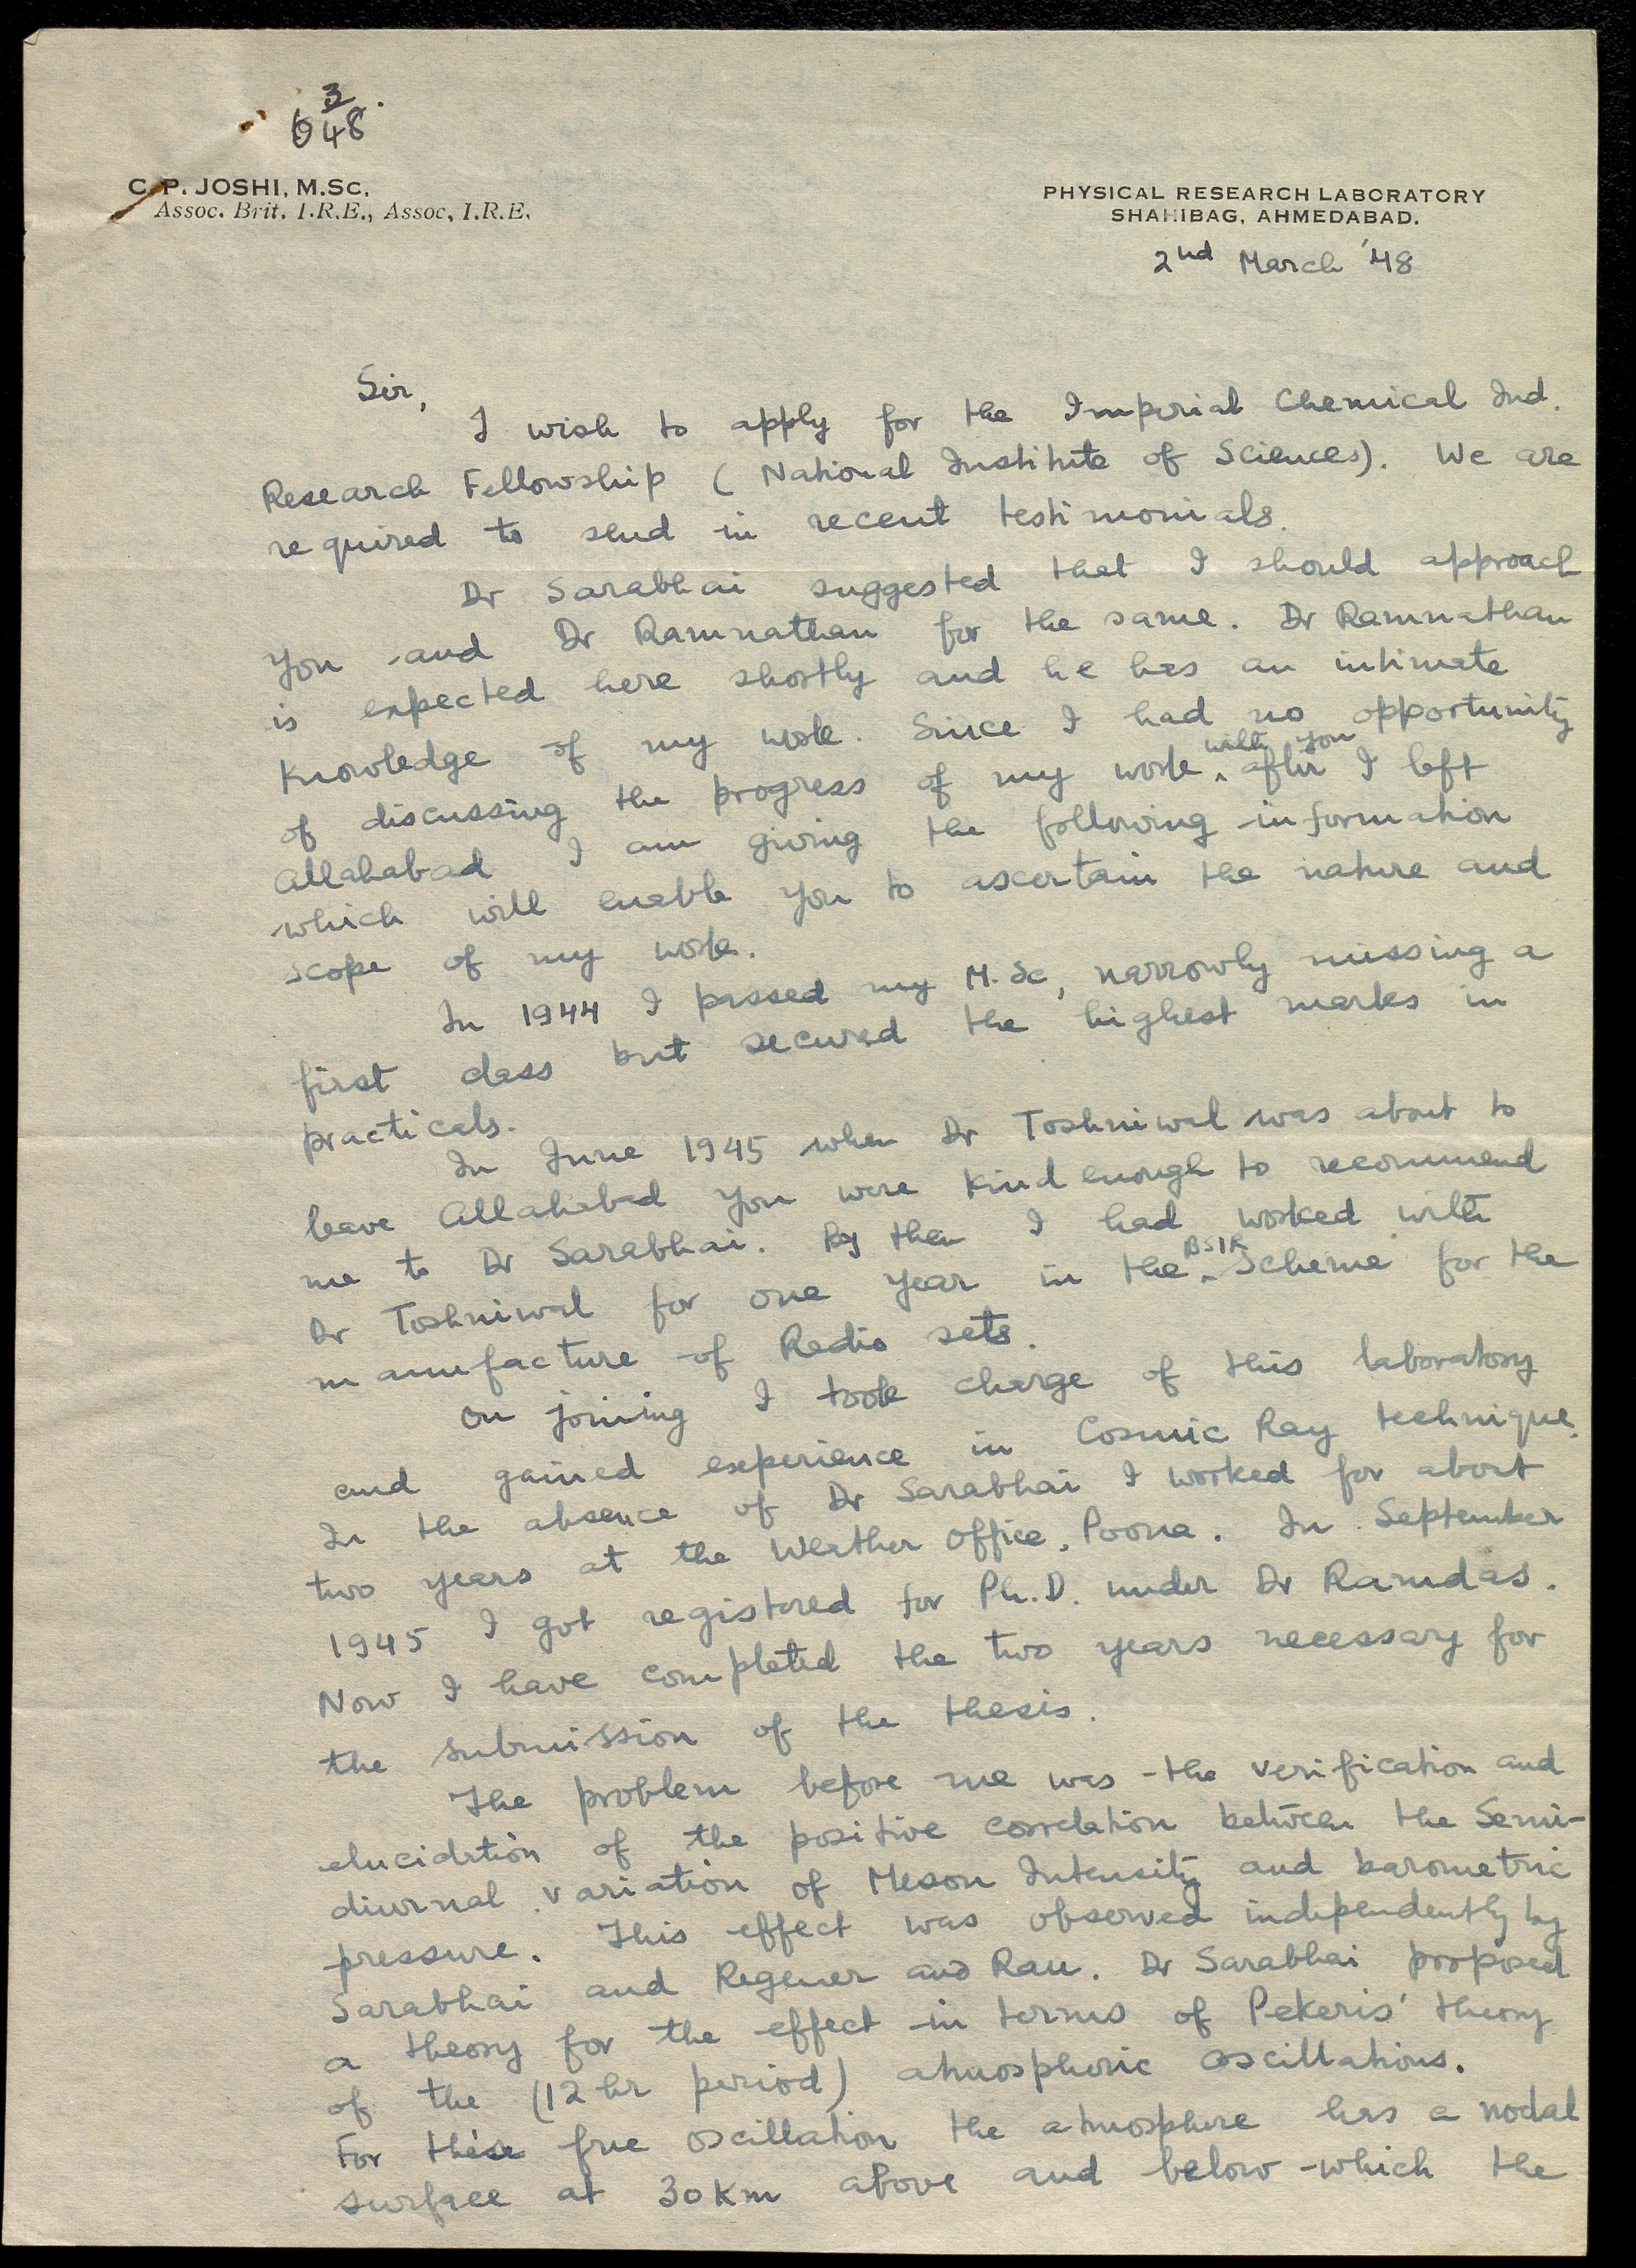 3
648.
C. P. JOSHI, M.SC.
Assoc. Brit. I.R.E., Assoc, I.R.E.
PHYSICAL RESEARCH LABORATORY
SHAHIBAG, AHMEDABAD.
2nd March '48
Sir,
I wish to apply for the Imperial Chemical Ind.
Research Fellowship ( National Institute of Sciences). We are
required to send in recent testimonials.
Dr Sarabhai suggested that I should approach
you and Dr Ramnathan for the same. Dr Ramnathan
is expected here shortly and he has an intimate
knowledge of my work. Since I had no opportunity
of discussing the progress of my work ^ with you after I left
Allahabad I am giving the following information
which will enable you to ascertain the nature and
scope of my work.
In 1944 I passed my M.Sc, narrowly missing a
first class but secured the highest marks in
practicals.
In June 1945 when Dr Toshniwal was about to
leave Allahabad you were kind enough to recommend
me to Dr Sarabhai. By then I had worked with
Dr Toshniwal for one year in the ^ BSIR Scheme for the
manufacture of Radio sets.
On joining I took charge of this laboratory
and gained experience in Cosmic Ray technique.
In the absence of Dr Sarabhai I worked for about
two years at the Weather Office, Poona. In September
1945 I got registered for Ph.D. under Dr Ramdas.
Now I have completed the two years necessary for
the submission of the thesis.
The problem before me was the verification and
elucidation of the positive correlation between the Semi-
diurnal variation of Meson Intensity and barometric
pressure. This effect was observed independently by
Sarabhai and Regener and Rau. Dr Sarabhai proposed
a theory for the effect in terms of Pekeris' theory
of the (12 hr period) atmospheric oscillations.
For these free oscillation the atmosphere has a nodal
surface at 30 Km above and below which the